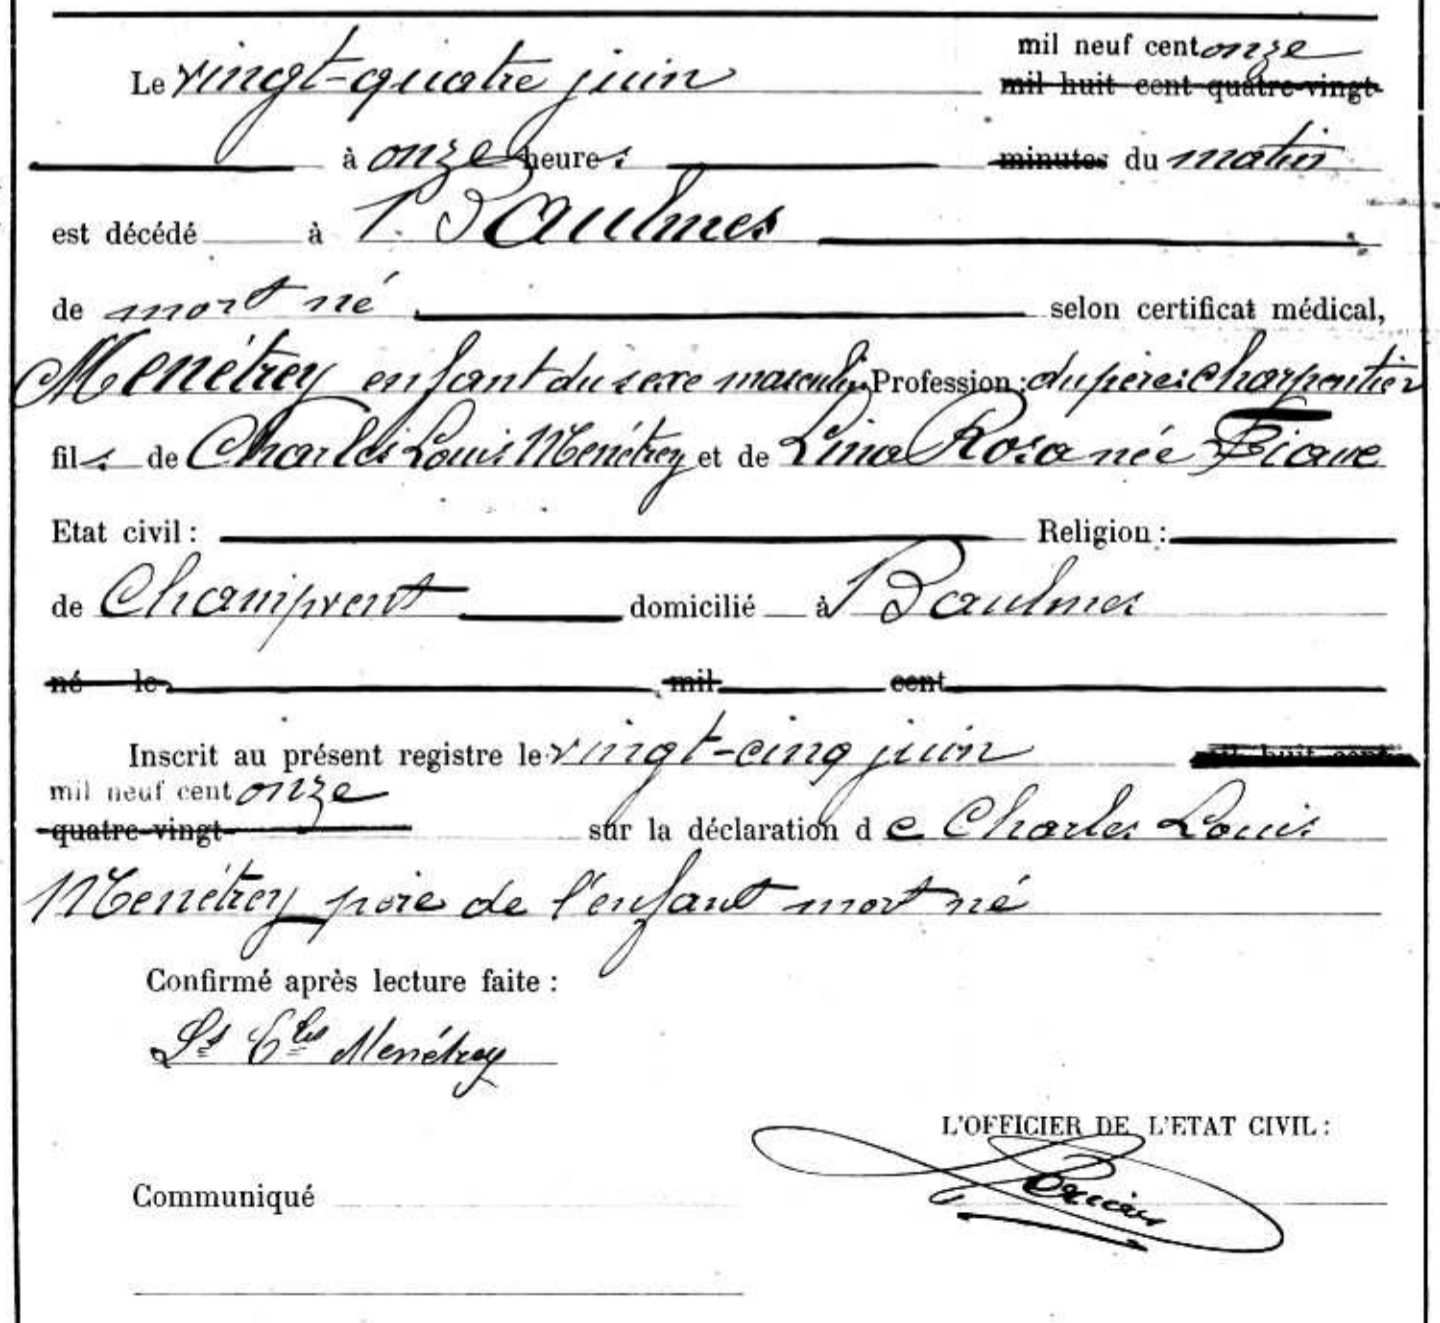 mil neuf cent onze
Le vingt-quatre juin mil huit cent quatre-vingt-
à onze heures minutes du matin
est décédé à Baulmes
de mort né selon certificat médical,
Menétrey enfant du sexe masculin Profession : du père: charpentier
fils de Charles Louis Menétrey et de Lina Rosa née
Etat civil : Religion :
de Champvent domicilié à Baulmes
né le mil cent
Inscrit au présent registre le vingt-cinq juin mil huit cent
mil neuf cent onze
quatre-vingt- sur la déclaration de Charles Louis
Menétrey père de l'enfant mort né
Confirmé après lecture faite :
Ls Chles Menétrey
L'OFFICIER DE L'ETAT CIVIL :
Communiqué